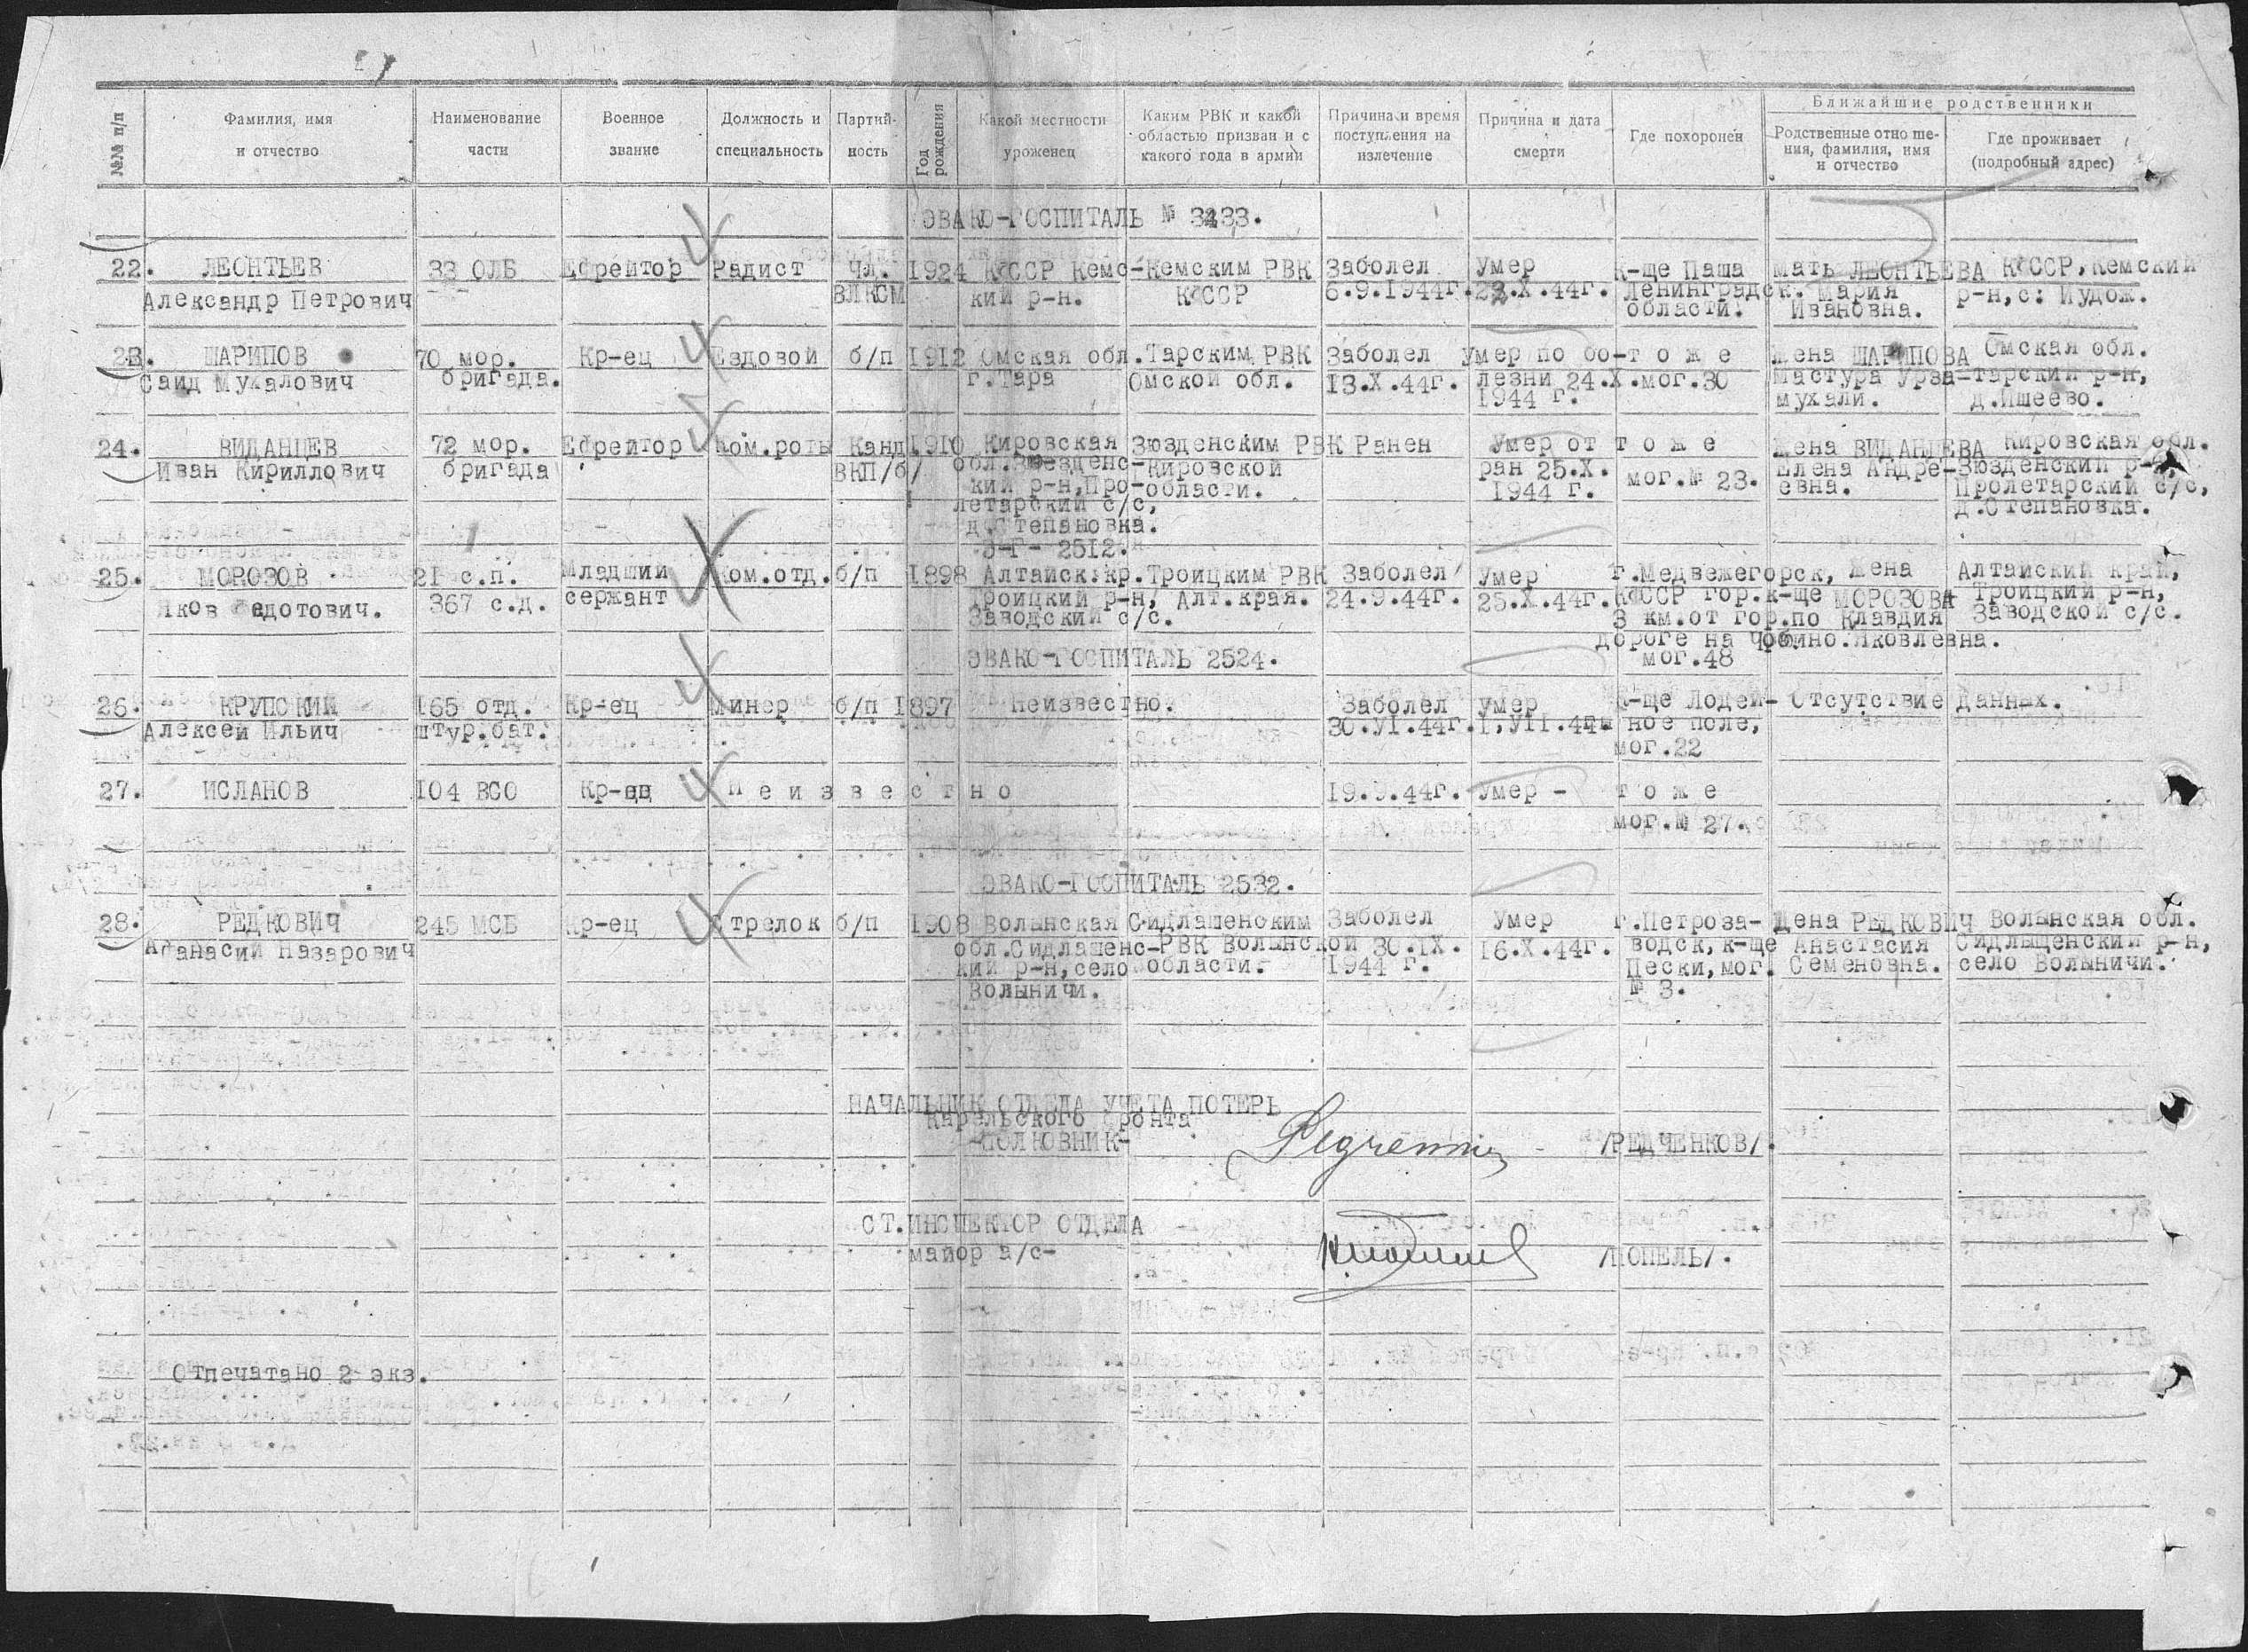 №№ п/п
Фамилия, имя
и отчество
Наименование
части
Военное
звание
Должность и
специальность
Партий-
ность
Год
рождения
Какой местности
уроженец
Каким РВК и какой
областью призван и с
какого года в армии
Причина и время
поступления на
излечение
Причина и дата
смерти
Где похоронен
Ближайшие родственники
Родственные отноше-
ния, фамилия, имя
и отчество
Где проживает
(подробный адрес)
ЭВАКО-ГОСПИТАЛЬ № 3433.
22.
ЛЕОНТЬЕВ
Александр Петрович
33 ОЛБ
Ефрейтор
Радист
Чл.
ВЛКСМ
1924
КФССР Кемс-
кий р-н.
Кемским РВК
КФССР
Заболел
6.9.1944г.
Умер
23.X.44г.
К-ще Паша
Ленинградск.
области.
Мать ЛЕОНТЬЕВА
Мария
Ивановна.
КФССР, Кемский
р-н, с: Шудож.
23.
ШАРИПОВ
Саид Мукалович
70 мор.
бригада.
Кр-ец
Ездовой
б/п
1912
Омская обл.
г.Тара
Тарским РВК
Омской обл.
Заболел
13.X.44г.
Умер по бо-
лезни 24.X.
1944 г.
т о ж е
мог.30
Жена ШАРИПОВА
Мастура Урза-
мухали.
Омская обл.
тарский р-н,
д.Ишеево.
24.
ВИДАНЦЕВ
Иван Кириллович
72 мор.
бригада
Ефрейтор
Ком.роты
Канд
ВКП/б/
1910
Кировская
обл.Зюезденс-
кий р-н,Про-
летарский с/с,
д.Степановка.
Зюзденским РВК
Кировской
области.
Ранен
Умер от
ран 25.X.
1944 г.
т о ж е
мог.№ 23.
Жена ВИДАНЦЕВА
Елена Андре-
евна.
Кировская обл.
Зюзденский р-н,
Пролетарский с/с,
д.Степановка.
Э-Г- 2512.
25.
МОРОЗОВ
Яков Федотович.
21 с.п.
367 с.д.
Младший
сержант
Ком.отд.
б/п
1898
Алтайск.кр.
Троицкий р-н,
Заводский с/с.
Троицким РВК
Алт.края.
Заболел
24.9.44г.
Умер
25.X.44г.
г.Медвежегорск,
КФССР гор.к-ще
3 км.от гор.по
дороге на Чобино.
мог.48
Жена
МОРОЗОВА
Клавдия
Яковлевна.
Алтайский край,
Троицкий р-н,
Заводской с/с.
ЭВАКО-ГОСПИТАЛЬ 2524.
26.
КРУПСКИЙ
Алексей Ильич
165 отд.
штур.бат.
Кр-ец
Минер
б/п
1897
Неизвестно.
Заболел
30.УI.44г.
Умер
I.УII.44г.
К-ще Лодей-
ное поле,
мог.22
Отсутствие данных.
27.
ИСЛАНОВ
104 ВСО
Кр-ец
Н е и з в е с т н о
19.9.44г.
Умер -
т о ж е
мог.№ 27.
ЭВАКО-ГОСПИТАЛЬ 2532.
28.
РЕДКОВИЧ
Афанасий Назарович
245 МСБ
Кр-ец
Стрелок
б/п
1908
Волынская
обл.Сидлашенс-
кий р-н, село
Волыничи.
Сидлашенским
РВК Волынской
области.
Заболел
30.IX.
1944 г.
Умер
16.X.44г.
г.Петроза-
водск, к-ще
Пески, мог.
№ 3.
Жена РЕДКОВИЧ
Анастасия
Семеновна.
Волынская обл.
Сидлыщенский р-н,
село Волыничи.
НАЧАЛЬНИК ОТДЕЛА УЧЕТА ПОТЕРЬ
Карельского фронта
-ПОЛКОВНИК-
/РЕДЧЕНКОВ/.
СТ.ИНСПЕКТОР ОТДЕЛА
майор а/с-
/ПОПЕЛЬ/.
Отпечатано 2 экз.